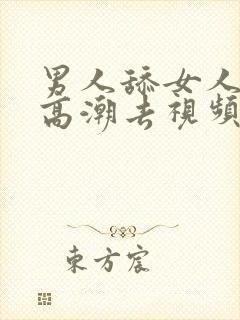 男人舔女人
高潮去視頻
東方宸